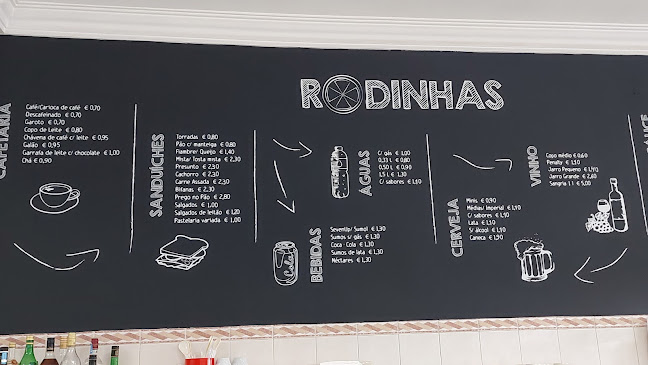 RODINHAS
CAFETARIA
Café/Carioca de café € 0,70
Descafeinado € 0,70
Garoto € 0,70
Copo de leite € 0,80
Chávena de café c/ leite € 0,95
Galão € 0,95
Garrafa de leite c/ chocolate € 1,00
Chá € 0,90
SANDUÍCHES
Torradas € 0,80
Pão c/ manteiga € 0,80
Fiambre/ Queijo € 1,40
Mista/ Tosta mista € 2,30
Presunto € 2,30
Cachorro € 2,30
Carne Assada € 2,30
Bifanas € 2,30
Prego no Pão € 2,80
Salgados € 1,00
Salgados de leitão € 1,20
Pastelaria variada € 1,00
ÁGUAS
C/ gás € 1,00
0,33 L € 0,80
0,50 L € 0,90
1,5 L € 1,30
C/ sabores € 1,40
BEBIDAS
SevenUp/ Sumol € 1,30
Sumos s/ gás € 1,30
Coca-Cola € 1,30
Sumos de lata € 1,30
Néctares € 1,30
Cola
CERVEJA
Minis € 0,90
Médias/ Imperial € 1,10
C/ sabores € 1,10
Lata € 1,10
S/ álcool € 1,10
Caneca
VINHO
Copo médio € 0,60
Penalty € 1,30
Jarro Pequeno € 1,40
Jarro Grande € 2,60
Sangria 1 l € 5,00